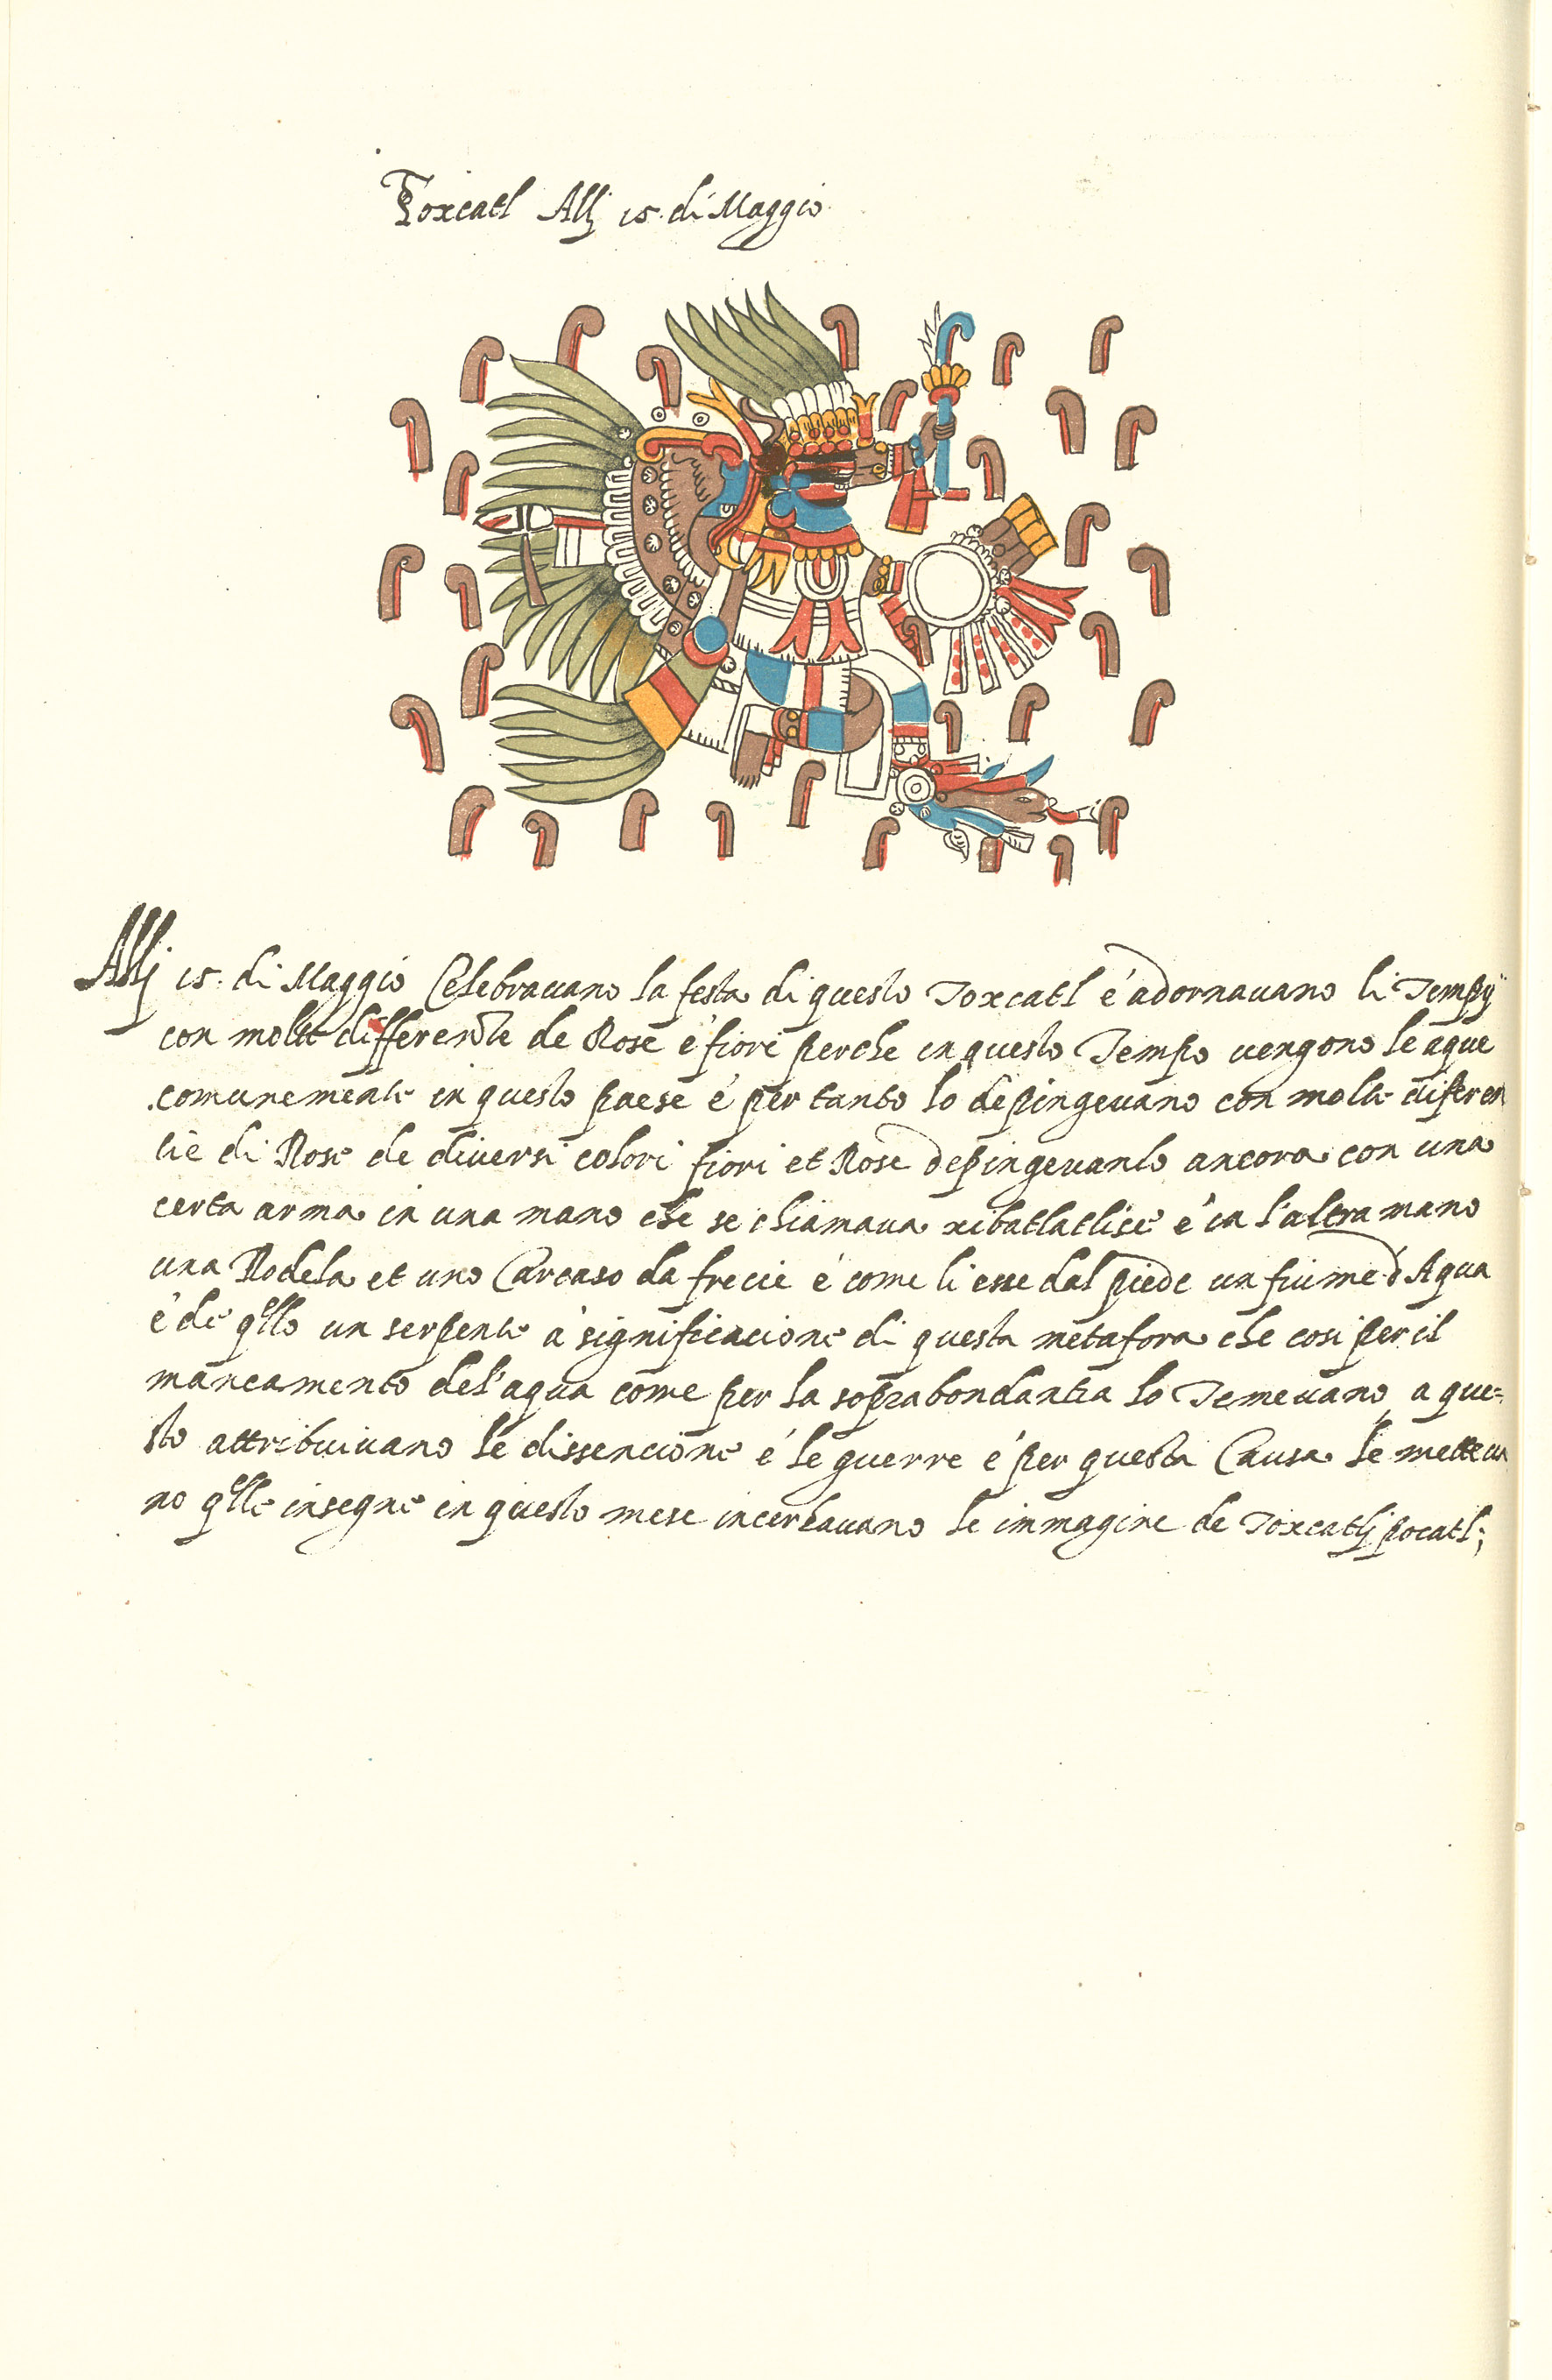 Toxcatl Allj 15. di Maggio.
Allj 15. di Maggio Celebravano la festa di questo Toxcatl é adornavano li Tempij
con molte differente de Rose é fiori perche in questo Tempo vengono le aque
comunemente in questo paese é per tanto lo depingevano con molte diferen
tie di Rose de diversi colori fiori et Rose depingevanlo ancora con una
certa arma in una mano che se chiamava xibatlatlice é in l'altra mano
una Rodela et uno Carcaso da frecie é come li esse dal piede un fiume d'Aqua
é de qllo un serpente á significacione di questa metafora che cosi per il
mancamento del'aqua come per la soprabondantia lo Temevano, a que=
sto attribuivano le dissencione é le guerre é per questa Causa le metteva
no qlle insegne in questo mese incer avano le immagine de Toxcatlj pocatl;